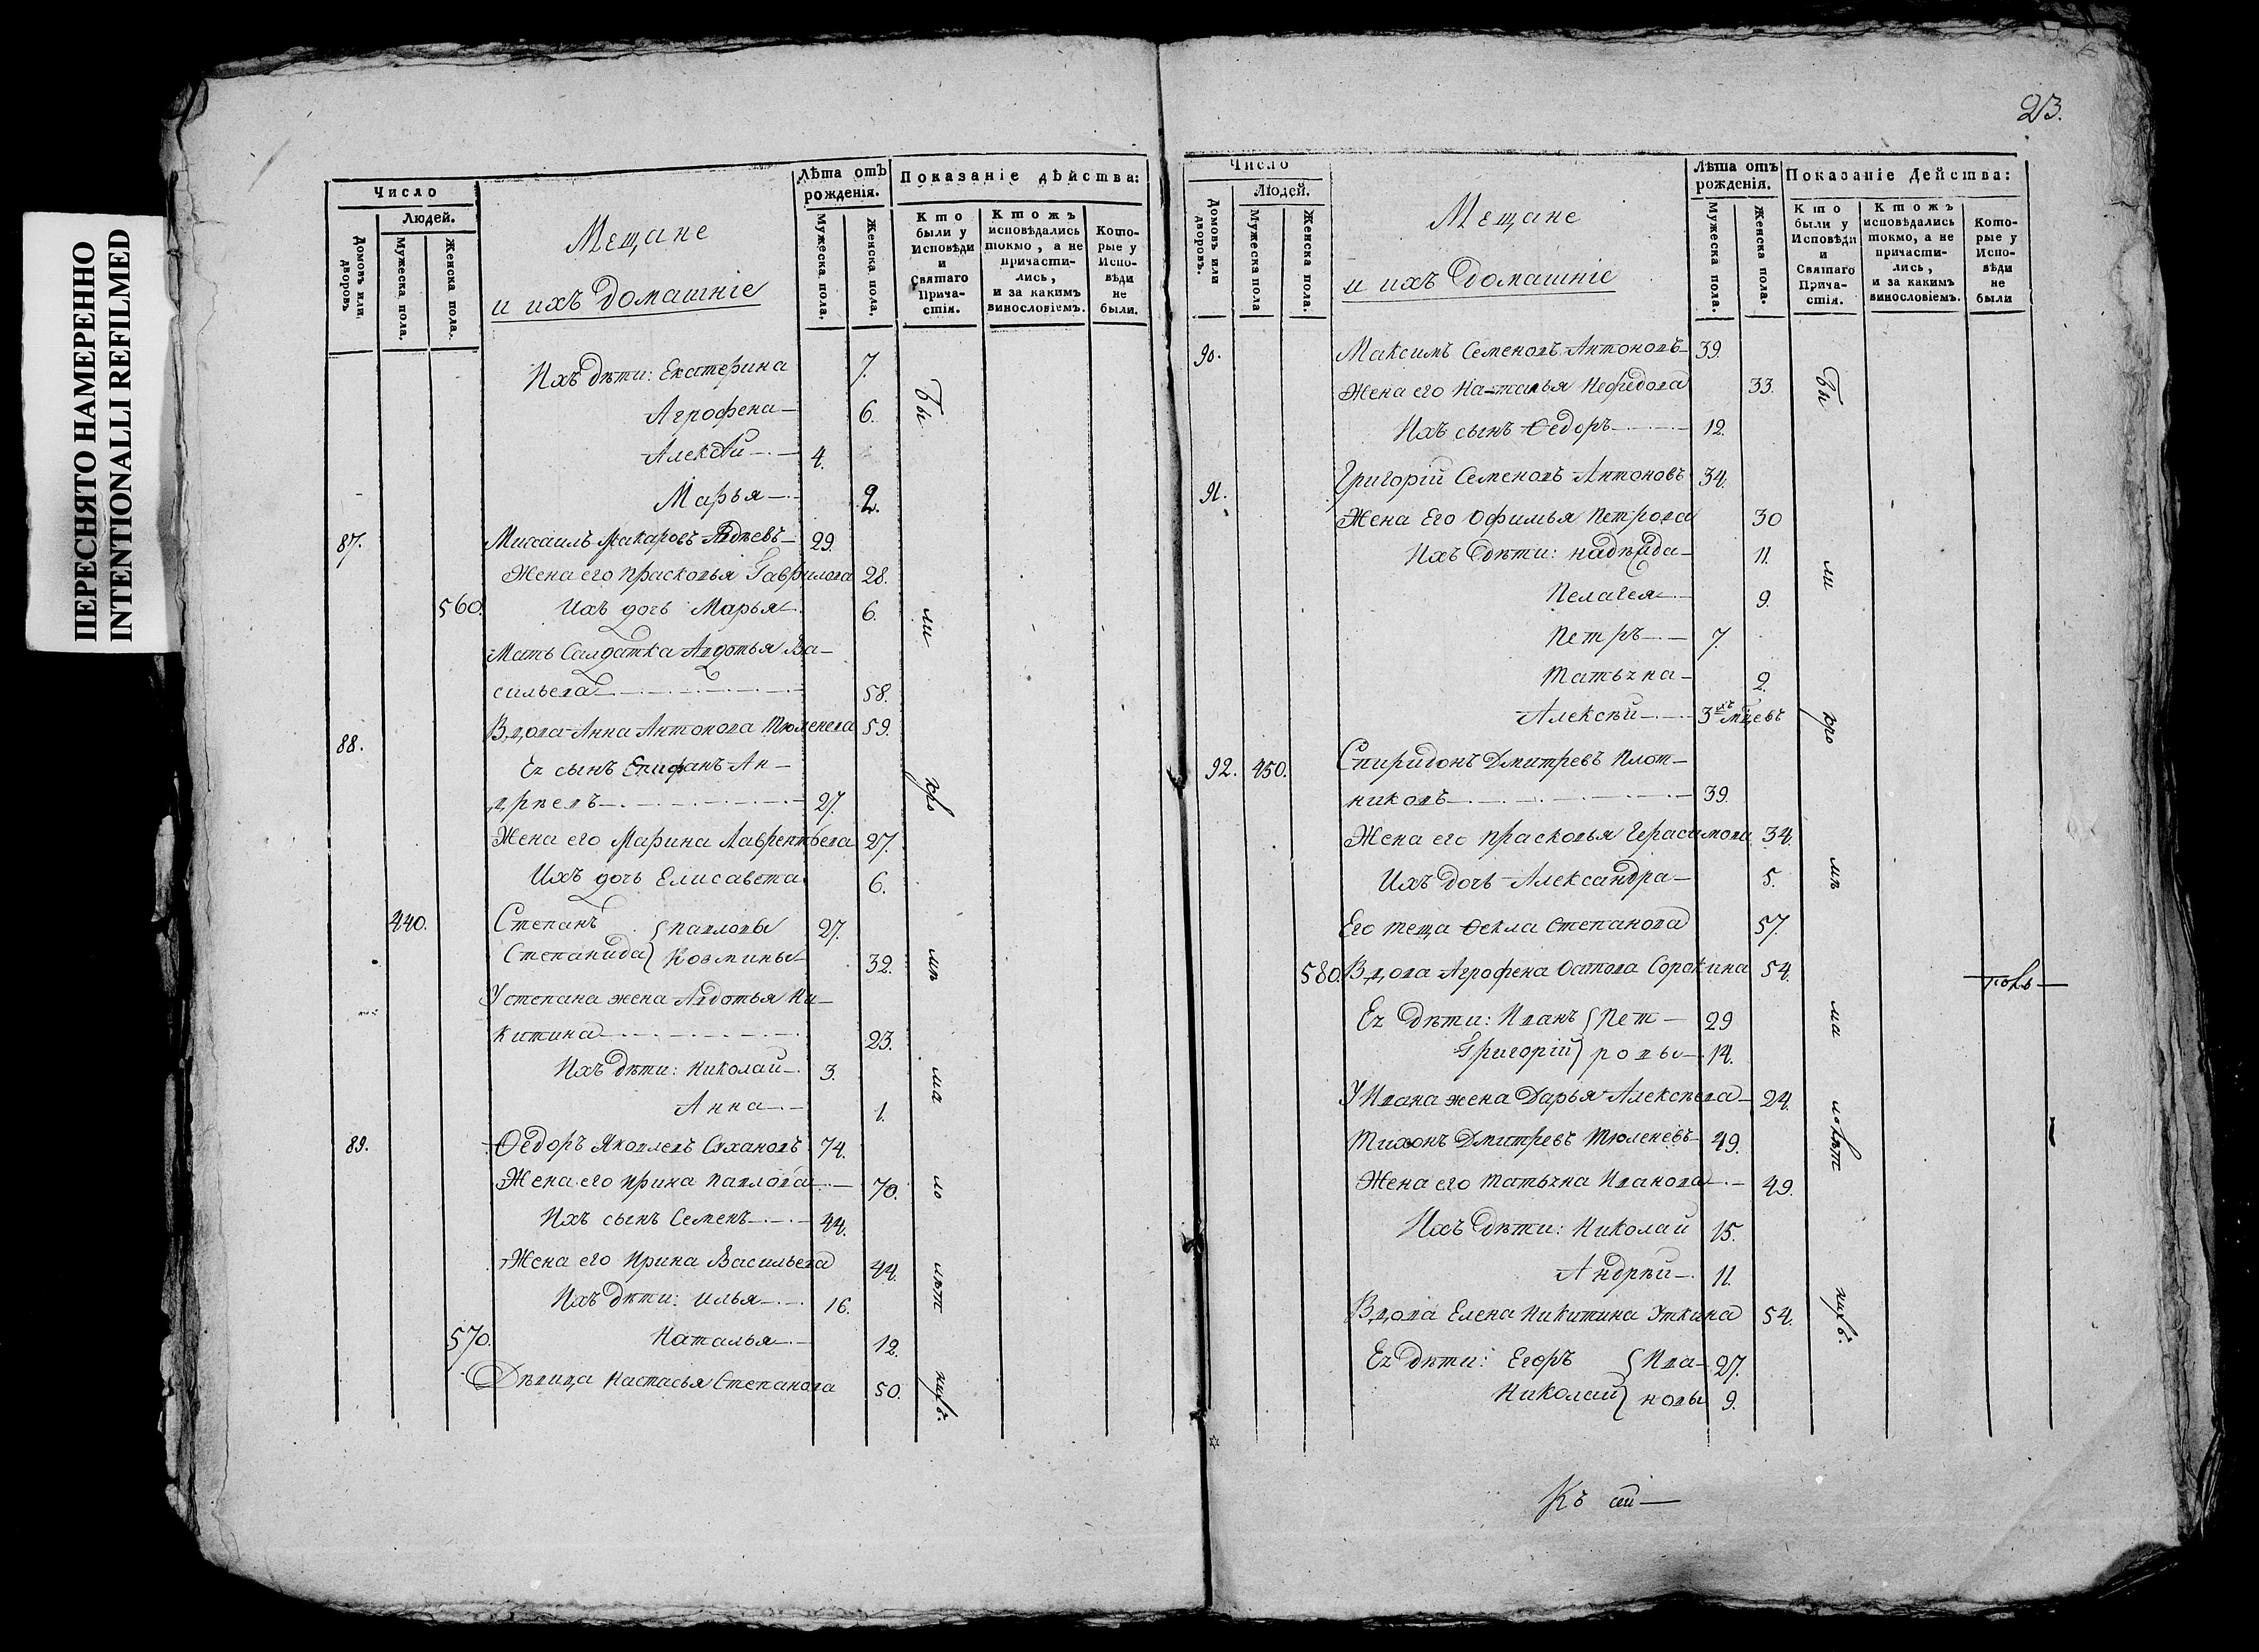 ПЕРЕСНЯТО НАМЕРЕННО
INTENTIONALLI REFILMED
Число
Людей.
Домовъ или дворовъ
Мужеска пола.
Женска пола.
Мещане
и ихъ домашніе
Лѣта отъ рожденія.
Мужеска пола.
Женска пола.
Показаніе дѣйства:
Кто были у Исповѣди и Святаго Причастія.
Ктожъ исповѣдались токмо, а не причастились, и за какимъ винословіемъ.
Которые у Исповѣди не были.
Ихъ дѣти: Екатерина 7.
Агрофена 6.
Алексѣй 4.
Марья 2.
87. Михаилъ Макаровъ Авдѣевъ 29.
Жена его Прасковья Гаврилова 28.
560. Ихъ дочь Марья 6.
Мать Салдатка Авдотья Ва-
сильева 58.
88. Вдова Анна Антонова Тюленева 59.
Ея сынъ Епифанъ Ан-
дрѣевъ 27.
Жена его Марина Лаврентьева 27.
Ихъ дочь Елисавета 6.
440. Степанъ Павловы 27.
Степанида Козмины 32.
У степана жена Авдотья Ни-
китина 23.
Ихъ дѣти: Николай 3.
Анна 1.
89. Ѳедоръ Яковлевъ Сухановъ 74.
Жена его Ирина Павлова 70.
Ихъ сынъ Семенъ 44.
Жена его Ирина Васильева 44.
Ихъ дѣти: Илья 16.
570. Наталья 12.
Дѣвица Настасья Степанова 50.
бы
ли
про
мѣ
ма
ло
лѣт
нихъ.
23.
Число
Людей.
Домовъ или дворовъ.
Мужеска пола
Женска пола.
Мещане
и ихъ домашніе
Лѣта отъ рожденія.
Мужеска пола.
Женска пола.
Показаніе Дейсшва:
Кто были у Исповѣди и Святаго Причастія.
Ктожъ исповѣдались токмо, а не причастились, и за какимъ винословіемъ.
Которые у Исповѣди не были
90. Максимъ Семеновъ Антоновъ 39.
Жена его Наталья Нефедова 33.
Ихъ сынъ Ѳедоръ 12.
91. Григорій Семеновъ Антоновъ 34.
Жена Его Офимья Петрова 30
Ихъ дѣти: Надѣжда 11.
Пелагея 9.
Петръ 7.
Татьяна 2.
Алексѣй 3хъ мцевъ
92. 450. Спиридонъ Дмитревъ Плот-
никовъ 39.
Жена его Прасковья Герасимова 34.
Ихъ дочь Александра 5.
Его теща Ѳекла Степанова 57.
580. Вдова Агрофена Осипова Сорокина 54.
Ея дѣти: Иванъ Пет- 29
Григорій ровы 14.
У Ивана жена Дарья Алексѣева 24.
Тихонъ Дмитревъ Тюленевъ 49.
Жена его Татьяна Иванова 49.
Ихъ дѣти: Николай 15.
Андрѣй 11.
Вдова Елена Никитина Уткина 54.
Ея дѣти: Егоръ Ива- 27.
Николай новы 9.
бы
ли
про
мѣ
ма
лолѣт
нихъ.